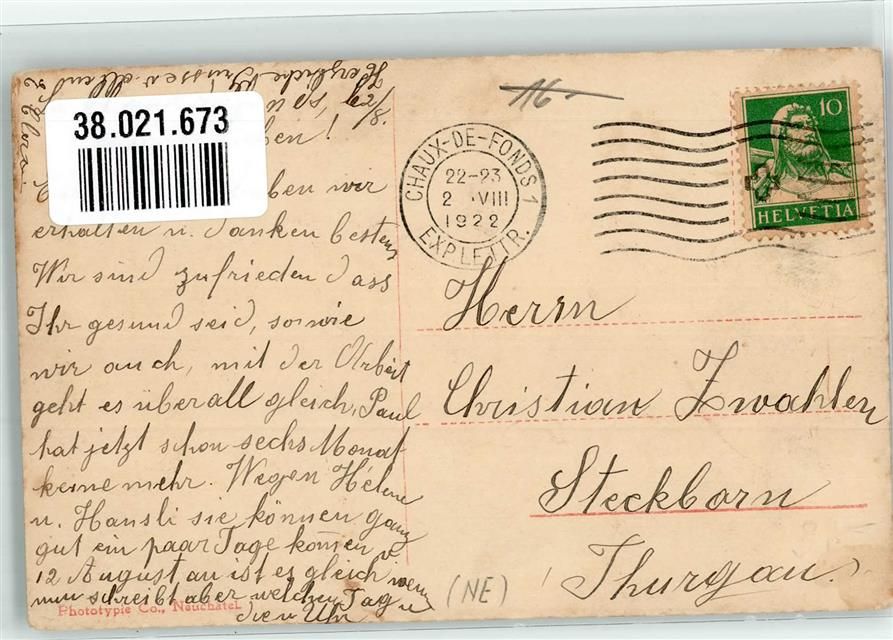 Herzliche Grüsse v. allend
38.021.673
ben!
ben wir
erhalten u. danken bestens
Wir sind zufrieden dass
Ihr gesund seid, sowie
wir auch, mit der Arbeit
geht es überall gleich, Paul
hat jetzt schon sechs Monat
keine mehr. Wegen Hélene
u. Hansli sie können ganz
gut ein paar Tage kommen v.
12 August an ist es gleich wenn
nun schreibt aber welchen Tag u
die Uhr
Phototypie Co., Neuchatel
16
CHAUX-DE-FONDS 1
22-23
2 VIII
1922
EXP. LETTR.
10
HELVETIA
Herrn
Christian Zwahlen
Steckborn
Thurgau.
(NE)